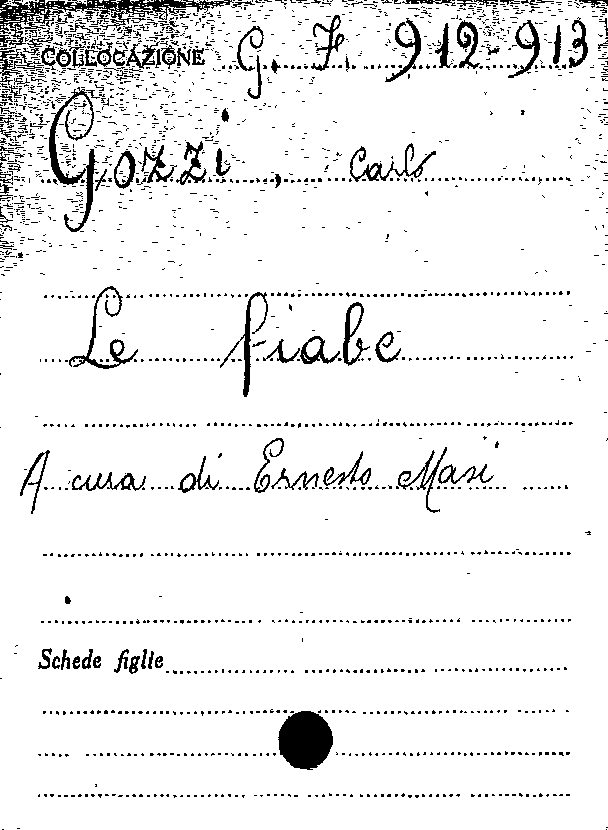 COLLOCAZIONE G. F. 912-913
Gozzi, Carlo
Le fiabe
A cura di Ernesto Masi
Schede figlie